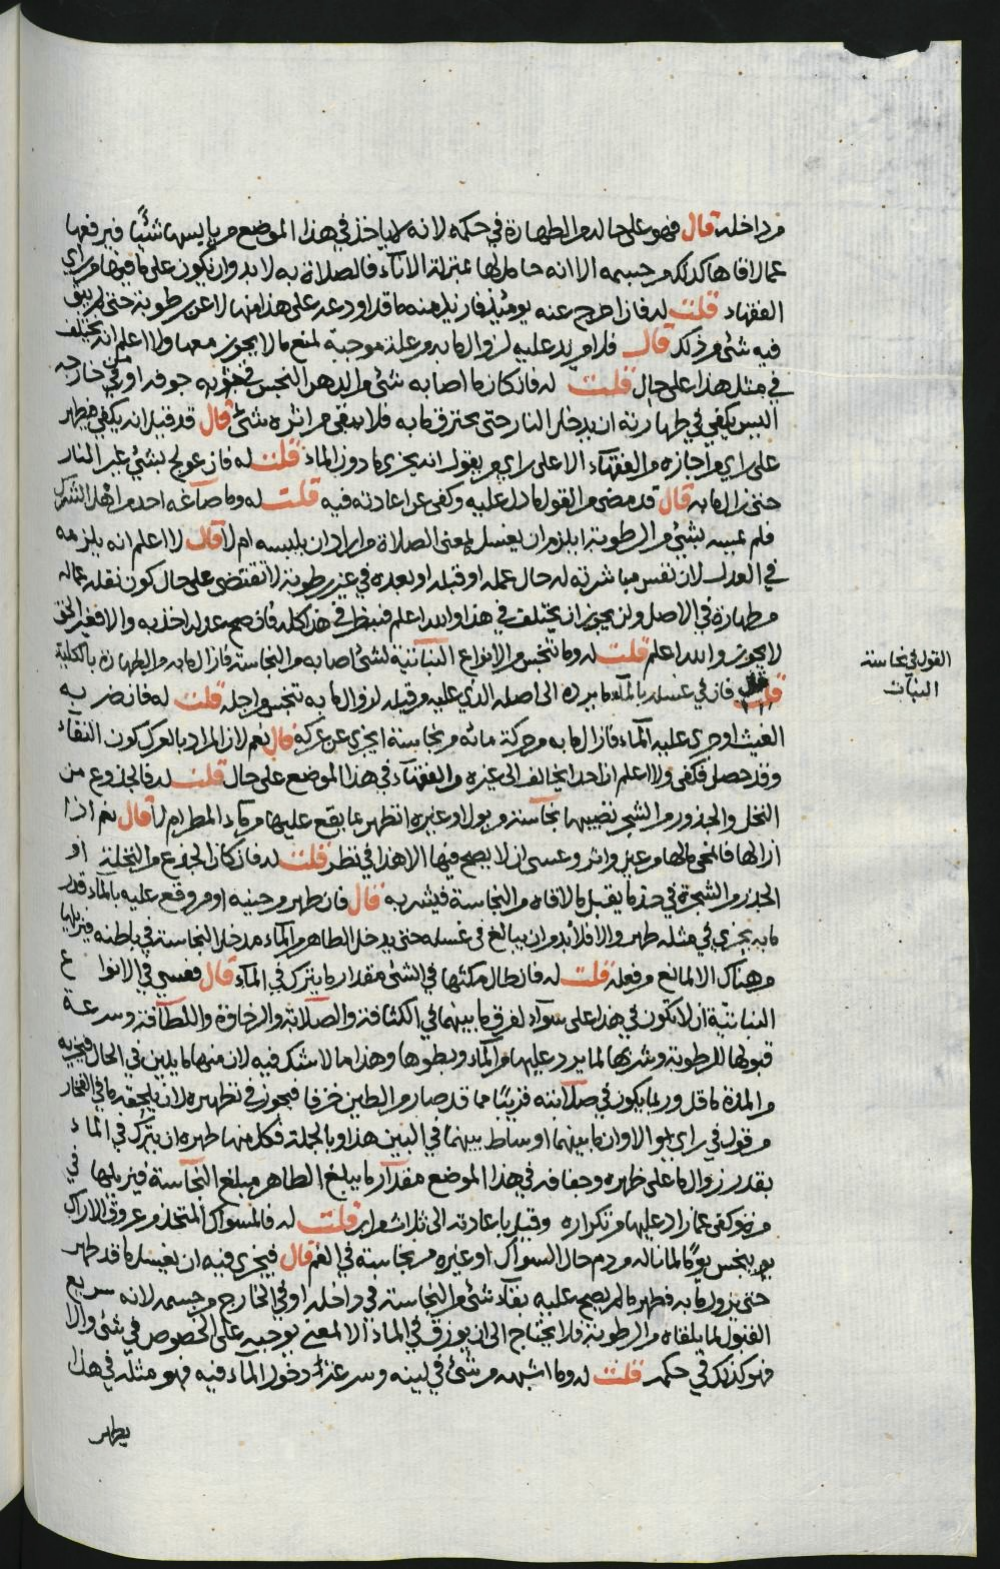 من داخله قال فهو على حاله من الطهارة في حكمه لانه لم ياخذ في هذا الموضع من يابسها شيئًا فيرفعها
عما لاقاها كذلك من جسمه الا انه حامل لها بمنزلة الاناء فالصلاة به لابد وان يكون على ما فيها من راي
الفقهاء قلت له فان اخرج عنه يومئذ فازيل منه ما قد اودعه على هذا منها لا عن رطوبة حتى لم يبق
فيه شيء من ذلك قال فلا مزيد عليه لزوال ما به من علة موجبة لمنع ما لا يجوز معها ولا اعلم انه يختلف
في مثل هذا على حال قلت له فان كان ما اصابه شيء من الدهن النجس في جوفه او من خارجه
اليس يكفي في طهارته ان يدخل النار حتى يحترق ما به فلا يبقى من اثره شيء قال قد قيل انه يكفي فيطهر
على راي من اجازه من الفقهاء لا على راي من يقول انه يجزي ما دون الماء قلت له فان عولج بشيء غير النار
حتى زال ما به قال قد مضى من القول ما دل عليه وكفى عن اعادته فيه قلت له وما صاغه احد من اهل الشرك
فلم يمسه بشيء من الرطوبة ايلزم ان يغسل لمعنى الصلاة من اراد ان يلبسه ام لا قال لا اعلم انه يلزمه
في العدل لان نفس مباشرته له حال عمله او قبله او بعده في غير رطوبة لا تقتضي على حال كون نقله عما له
من طهارة في الاصل ولن يجوز ان يختلف في هذا والله اعلم فينظر في هذا كله فان صح عدله اخذ به والا فغير الحق
لا يجوز والله اعلم قلت له وما تنجس من الانواع النباتية لشيء اصابه من النجاسة فازال ما به من الطهارة بالكلية
قال فان في غسله بالماء ما يرده الى اصله الذي عليه من قبله لزوال ما به تنجس من اجله قلت له فان ضربه
الغيث او جرى عليه الماء فازال ما به من حركة مائه من نجاسة ايجزي عن عركه قال نعم لان المراد بالعرك كون النقاء
وقد حصل فكفى ولا اعلم ان احدا يخالف الى غيره من الفقهاء في هذا الموضع على حال قلت له فالجذوع من
النخل والجذور من الشجر تصيبها نجاسة من بول او غيره اتطهر بما يقع عليها من ماء المطر ام لا قال نعم اذا
ازالها فانمحى ما لها من عين واثر وعسى ان لا يصح فيها الا هذا في نظر قلت له فان كان الجذع من النخلة او
الجذر من الشجرة في حد ما يقبل ما لاقاه من النجاسة فيشربه قال فان طهر من حينه او من وقع عليه بالماء قدر
ما به يجزي في مثله طهر والا فلا بد وان يبالغ في غسله حتى يدخل الطاهر من الماء مدخل النجاسة في باطنه فيزيلها
من هناك الا لمانع من فعله قلت له فان طال مكثها في الشيء مقدار ما يترك في الماء قال فعسى في الانواع
النباتية ان لا تكون في هذا على سواء لفرق ما بينها في الكثافة والصلابة والرخاوة واللطافة وسرعة
قبولها للرطوبة وشربها لما يرد عليها من الماء وبطوها وهذا ما لا شك فيه لان منها ما يلين في الحال فيجزيه
من المدة ما قل وربما يكون في صلابته قريبًا مما قد صار من الطين خزفا فيجوز في تطهيره لان يلحقه ما في الفخار
من قول في راي والاوان ما بينهما اوساط بينهما في البين هذا وبالجملة فكل منها طهره ان يترك في الماء
بقدر زوال ما على ظهره وجفافه في هذا الموضع مقدار ما يبلغ الطاهر مبلغ النجاسة فيزيلها في
مرة وكفى عما زاد عليها من تكراره وقيل باعادته الى ثلاث مرار قلت له فالمسواك المتخذ من عروق الاراك
ينجس يومًا لما ناله من دم حال السواك او غيره من نجاسة في الفم قال فيجزي فيه ان يغسل ما قد طهر
حتى يزول ما به فيطهر ما لم يصح عليه بقاء شيء من النجاسة في داخله او في الخارج من جسمه لانه سريع
القبول لما يلقاه من الرطوبة فلا يحتاج الى ان يوزق في الماء الا لمعنى يوجبه على الخصوص في شيء والا
فهو كذلك في حكمه قلت له وما اشبهه من شيء في لينه وسرعة دخول الماء فيه فهو مثله في هذا
يطهر
القول في نجاسة
النبات